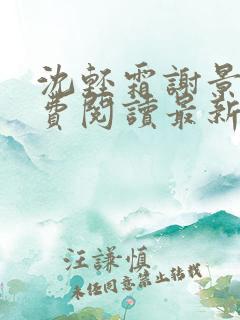 沈輕霜謝景
費閱讀最新
汪謙慎
未经同意禁止转载